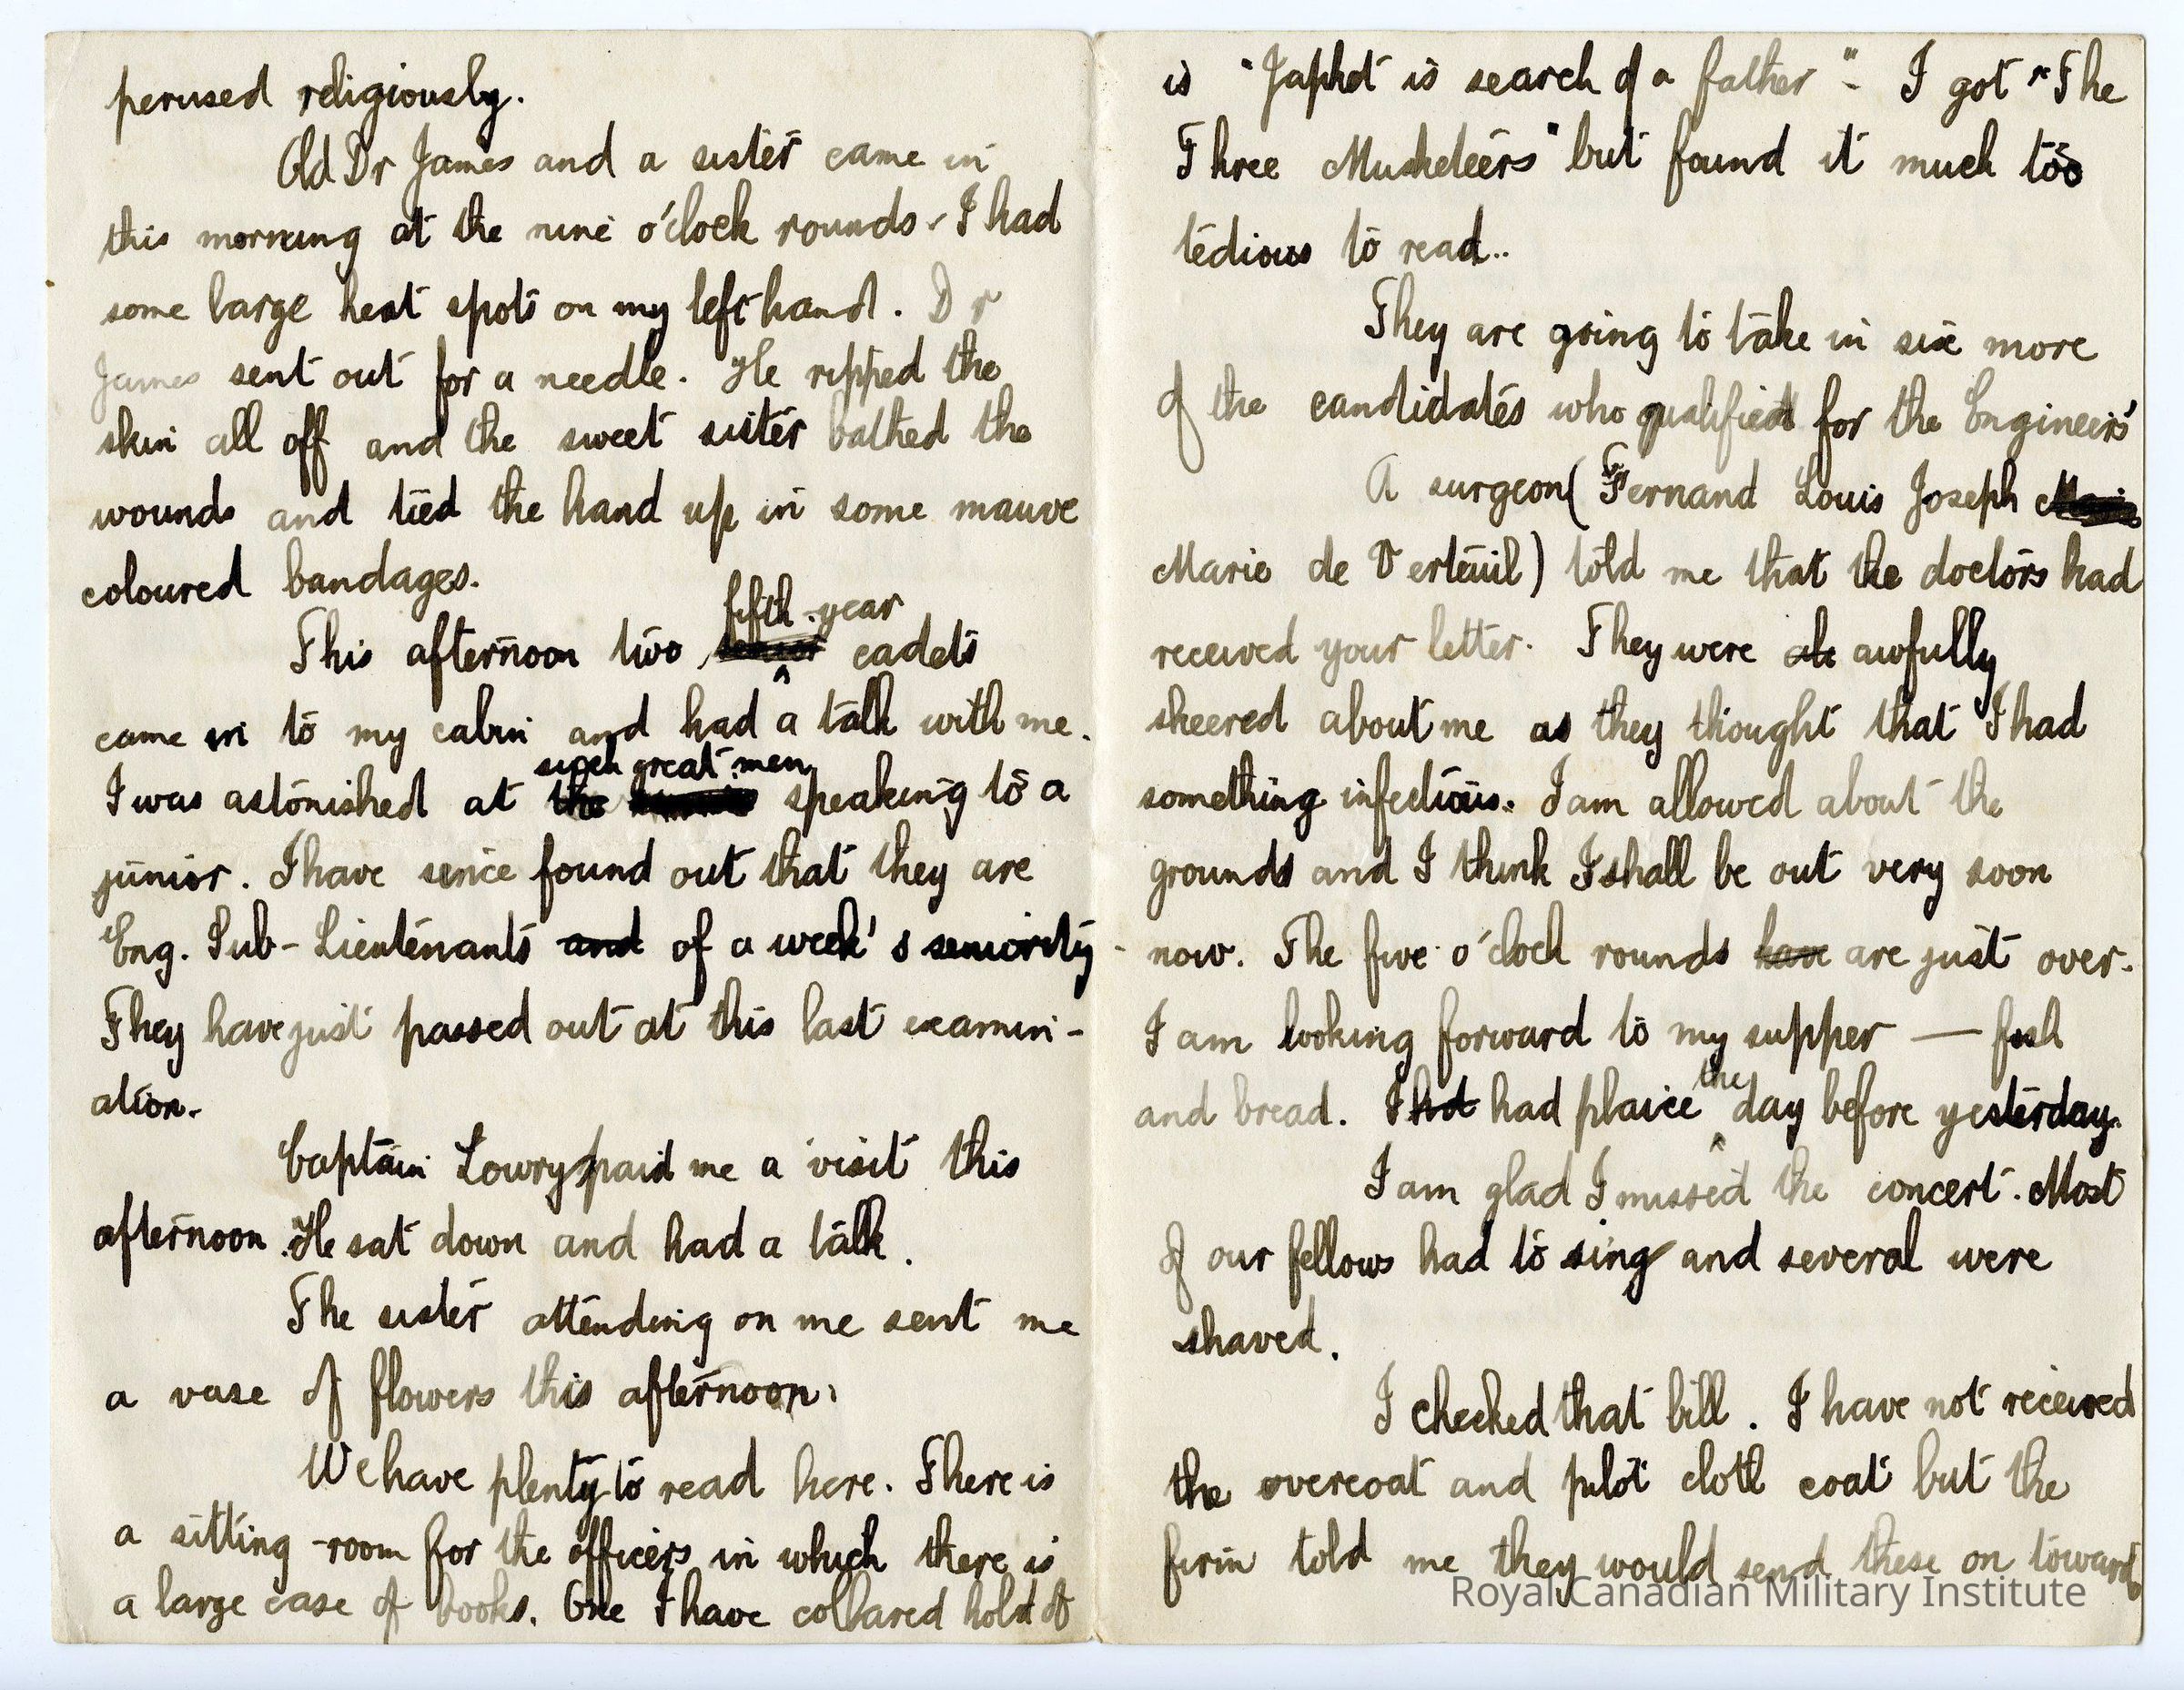 perused religiously.
Old Dr James and a sister came in
this morning at the nine o'clock rounds - I had
some large heat spots on my left hand. Dr
James sent out for a needle. He ripped the
skin all off and the sweet sister bathed the
wounds and tied the hand up in some mauve
coloured bandages.
fifth-year
This afternoon two senior cadets
came in to my cabin and had a talk with me.
such great men
I was astonished at the speaking to a
junior. I have since found out that they are
Eng. Sub-Lieutenants and of a week's seniority -
They have just passed out at this last examin-
ation.
Captain Lowry paid me a visit this
afternoon. He sat down and had a talk.
The sister attending on me sent me
a vase of flowers this afternoon.
We have plenty to read here. There is
a sitting-room for the officers in which there is
a large case of books. One I have collared hold of
is "Japhet is search of a father" - I got "The
Three Musketeers" but found it much too
tedious to read..
They are going to take in six more
of the candidates who qualified for the Engineers'
A surgeon (Fernand Louis Joseph Marie
Marie de Verteuil) told me that the doctors had
received your letter. They were awfully
skeered about me as they thought that I had
something infectious. I am allowed about the
grounds and I think I shall be out very soon
now. The five o'clock rounds have are just over.
I am looking forward to my supper — fish
the
and bread. I had plaice day before yesterday.
I am glad I missed the concert. Most
of our fellows had to sing and several were
shaved.
I checked that bill. I have not received
the overcoat and pilot cloth coat but the
firm told me they would send these on towards
Royal Canadian Military Institute